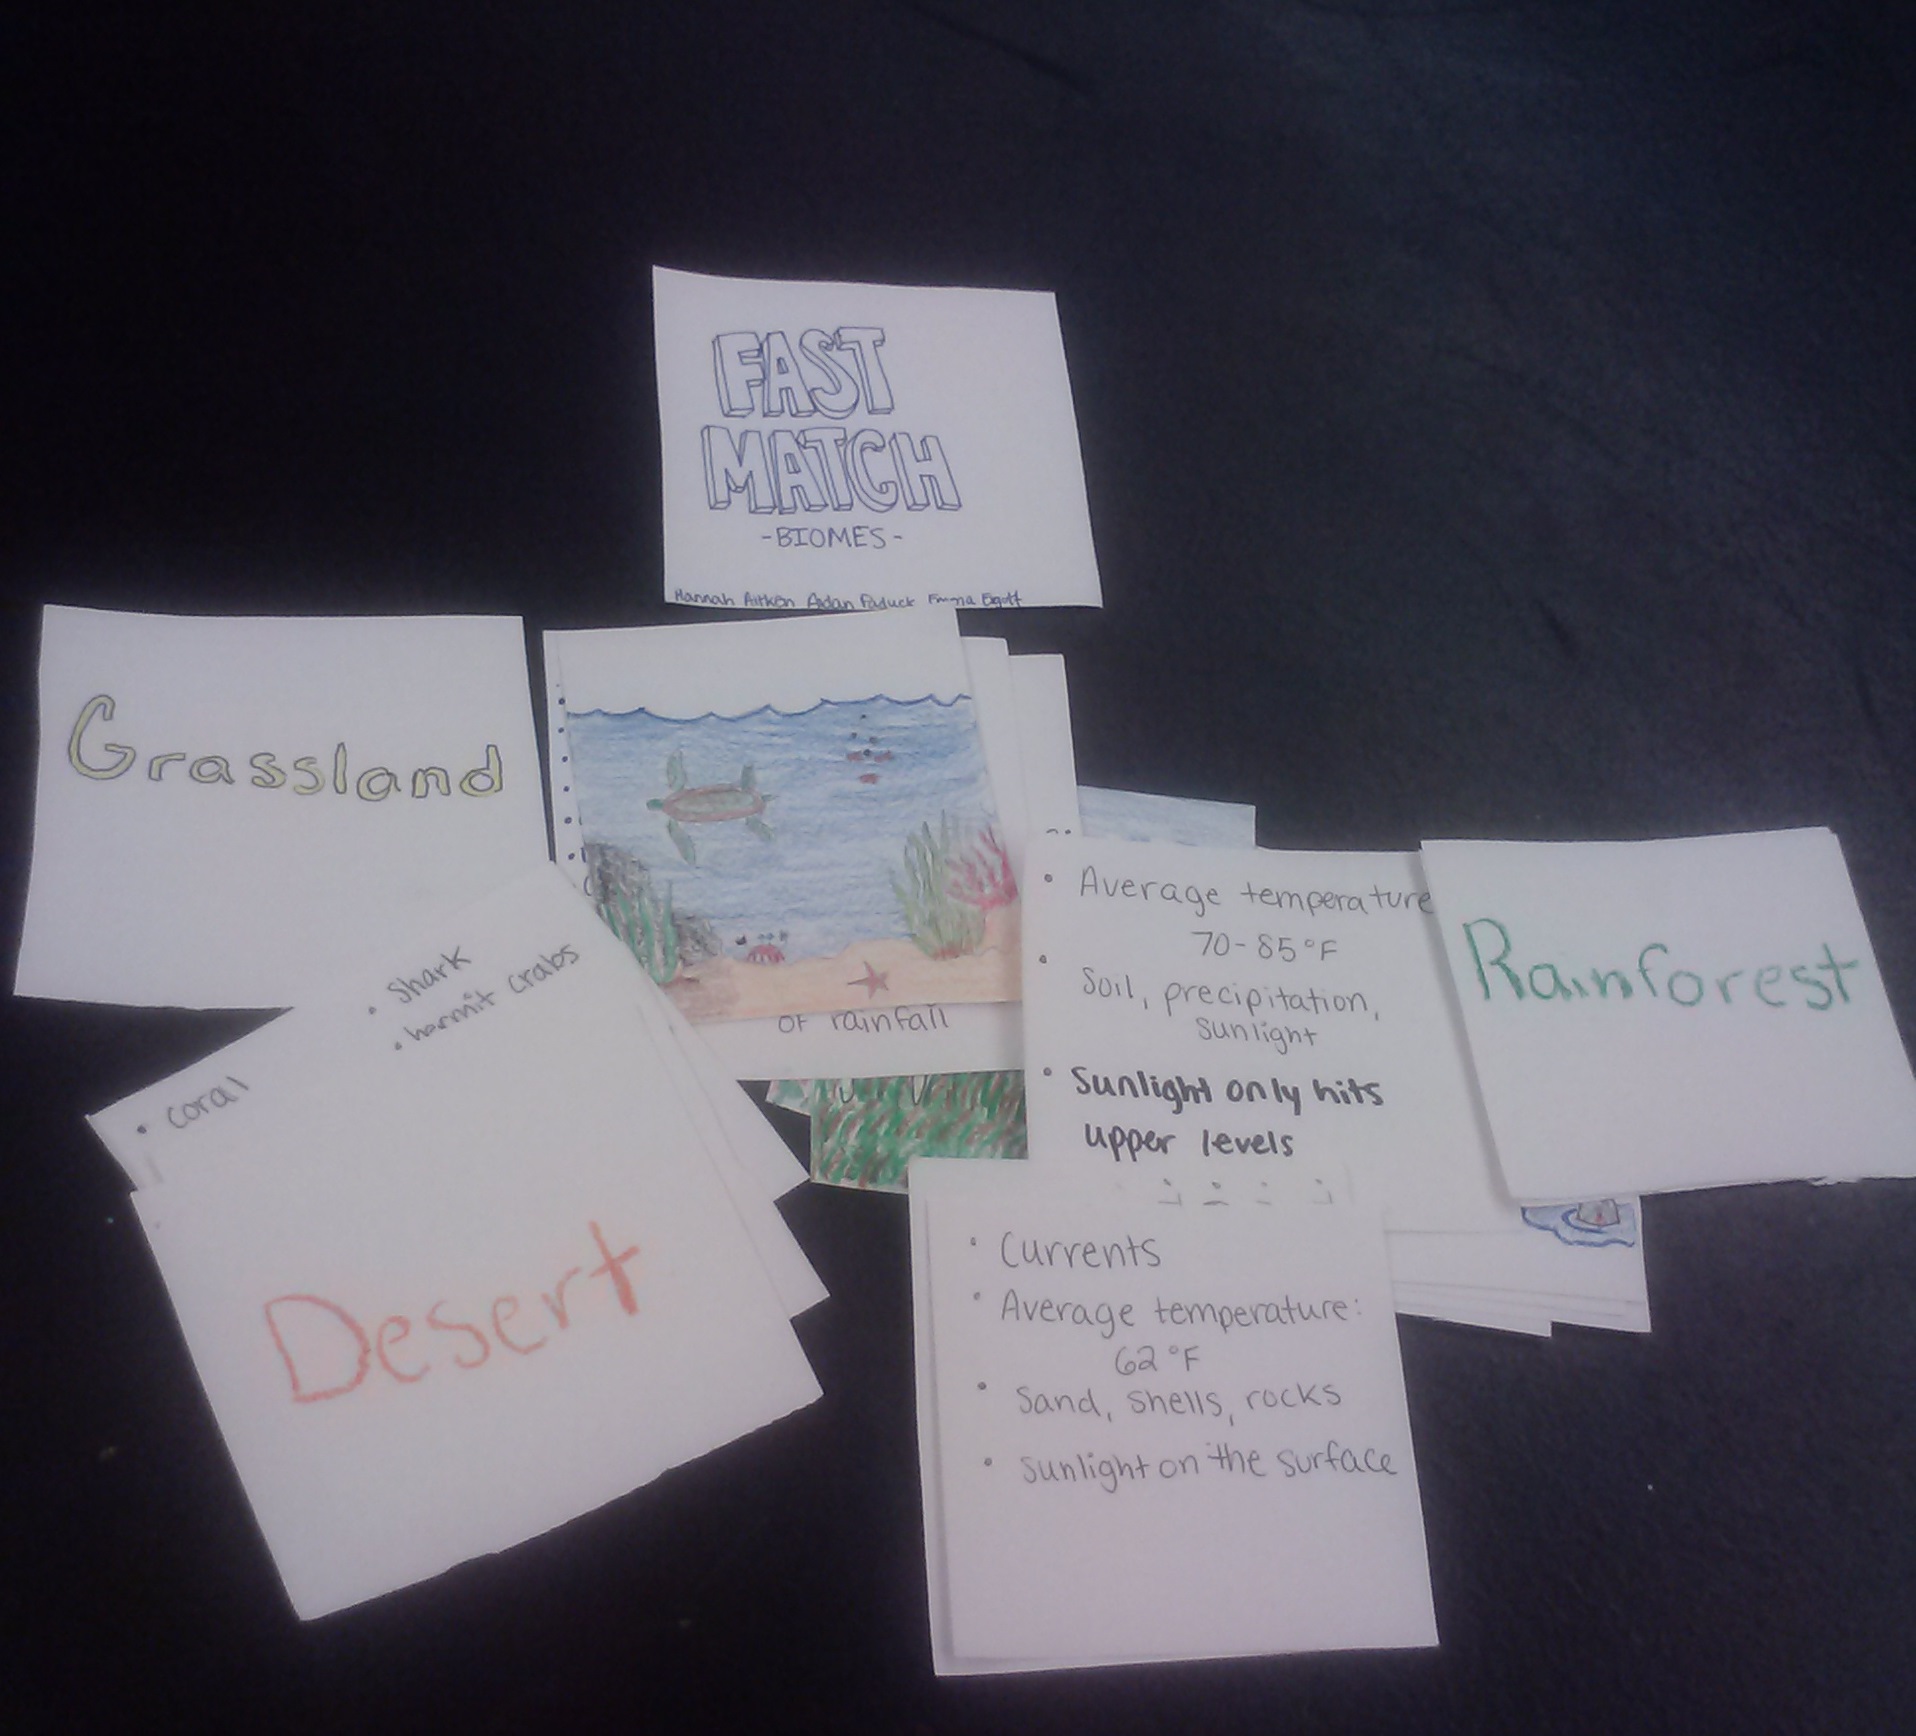 FAST
MATCH
-BIOMES-
Hannah Aitken Aidan Paduck Emma
Grassland
of rainfall
• Shark
• hermit crabs
• coral
Desert
• Average temperature
70-85°F
• Soil, precipitation,
sunlight
• Sunlight only hits
upper levels
Rainforest
• Currents
• Average temperature:
62°F
• Sand, shells, rocks
• sunlight on the surface